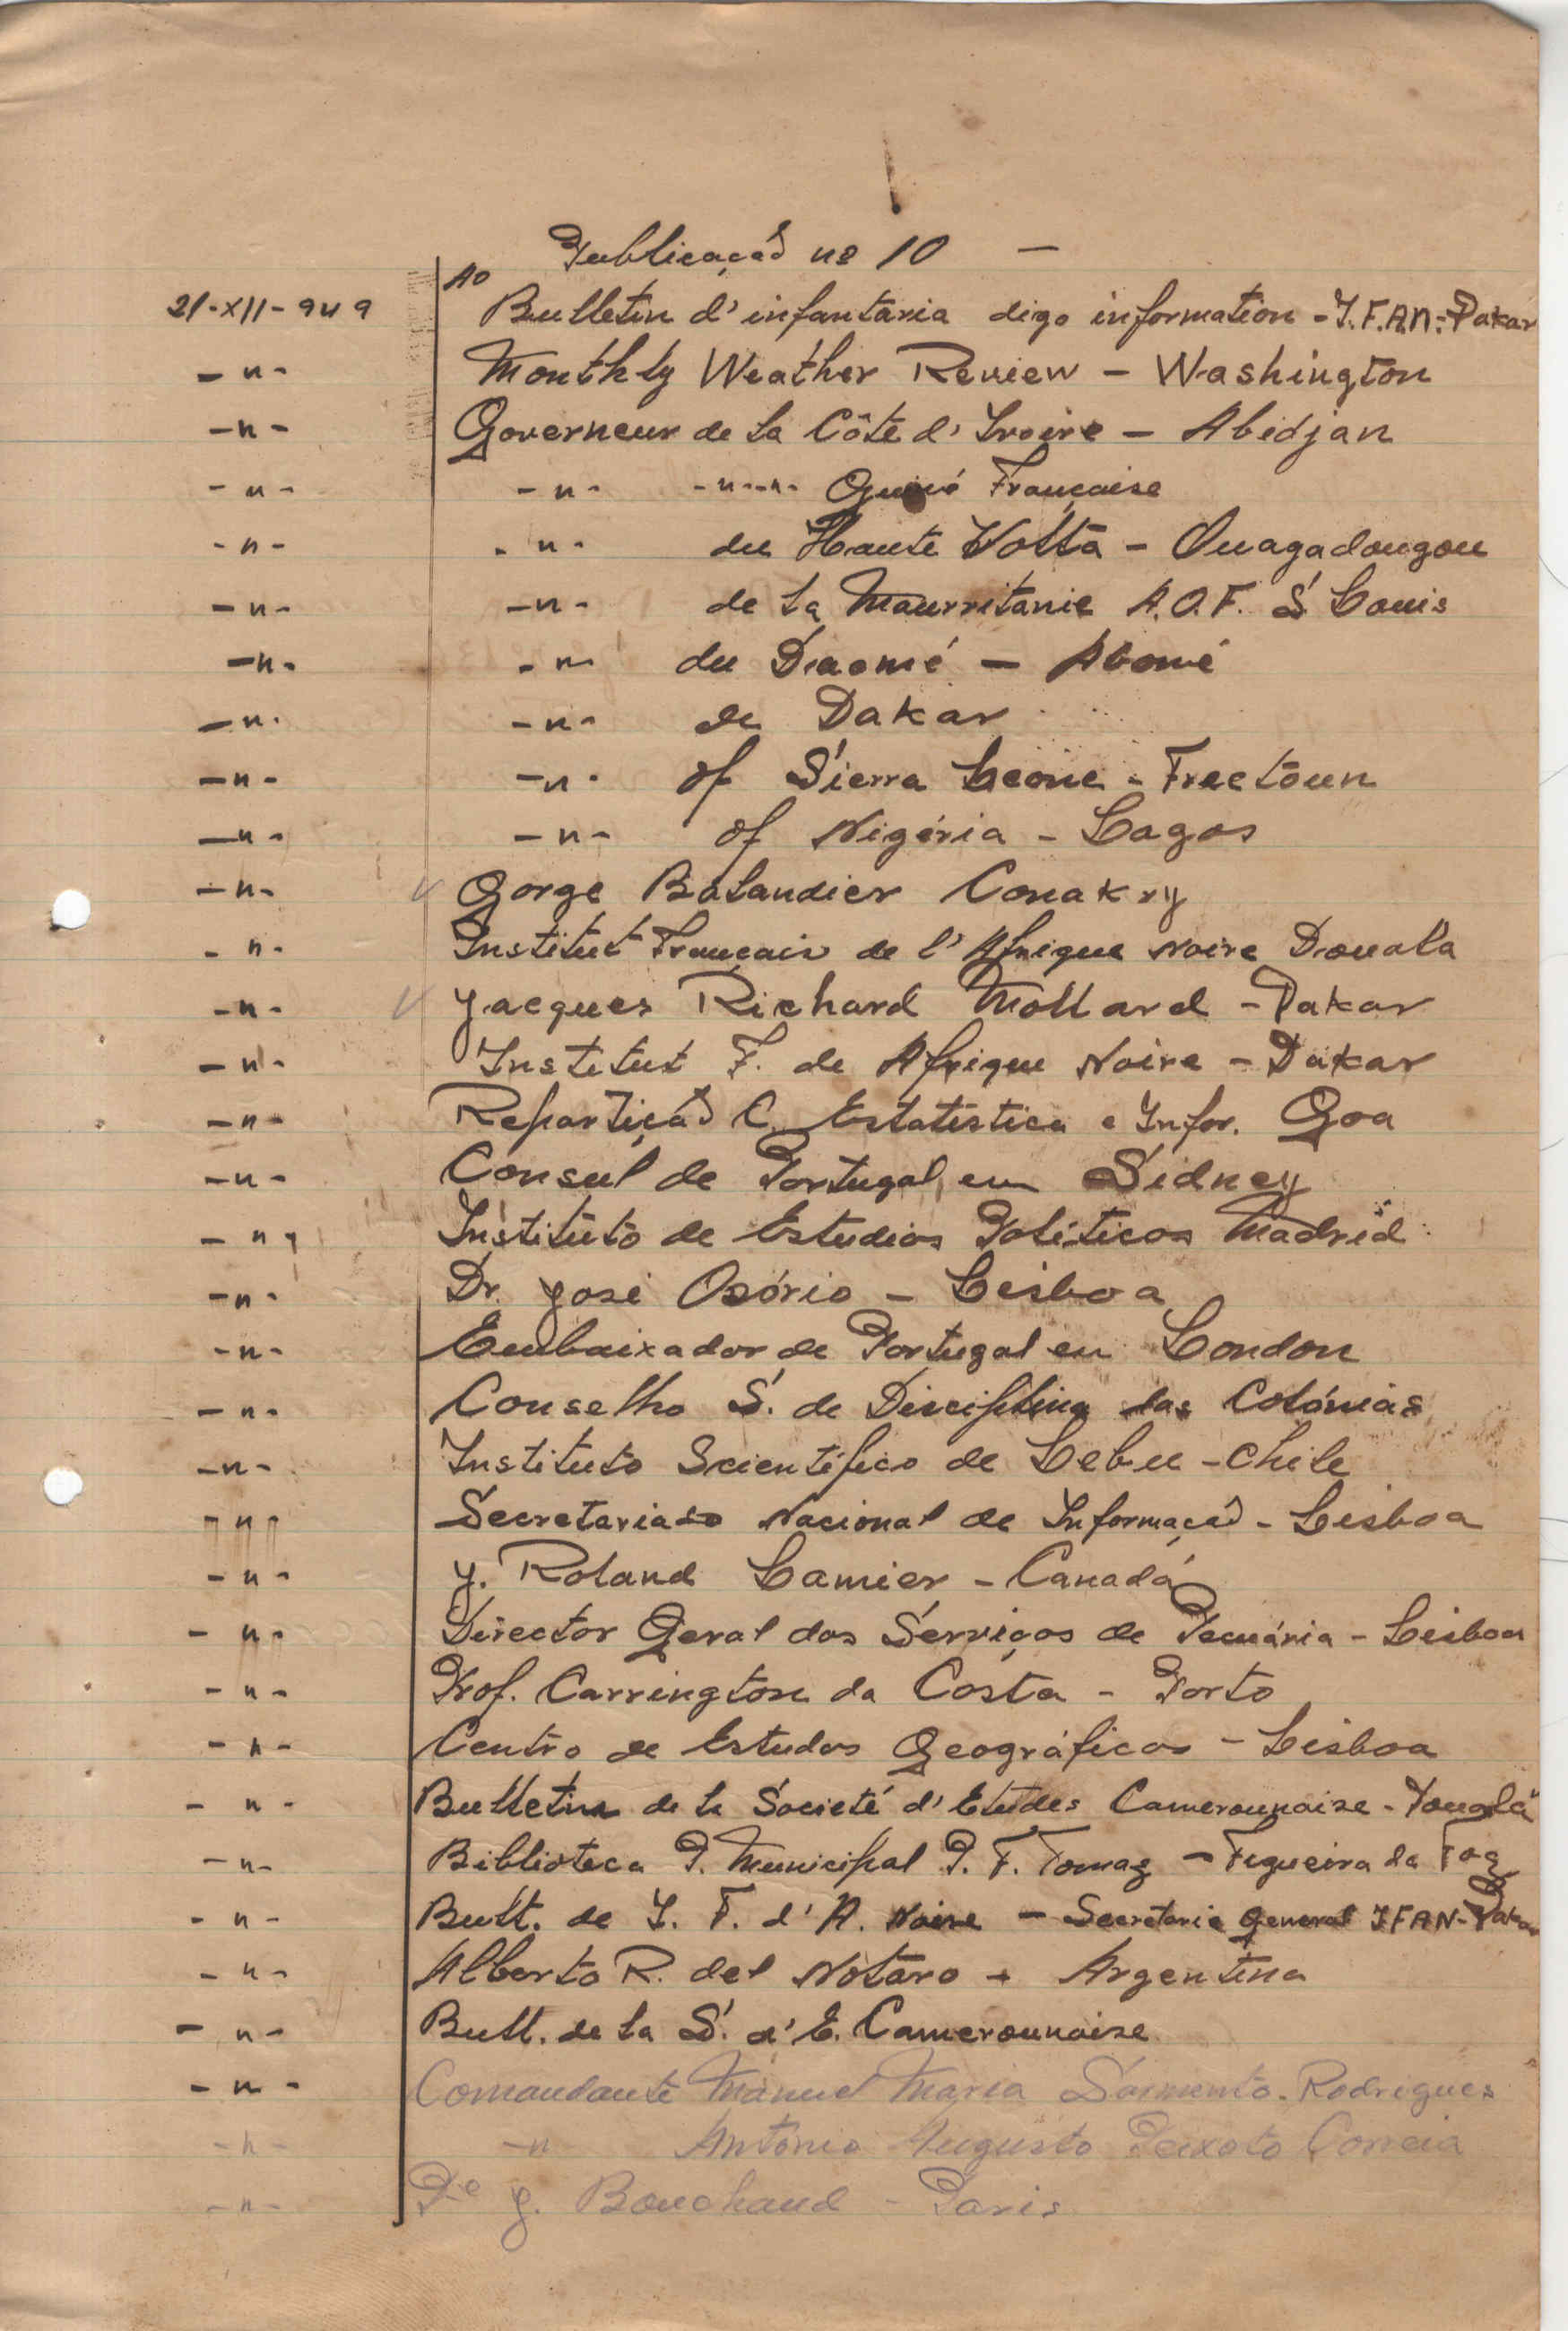 Publicação nº 10 —
Ao
21-XII-949 Bulletin d'infantaria digo information - I.F.A.N.- Dakar
-"- Monthly Weather Review - Washington
-"- Governeur de la Côte d'Ivoire - Abidjan
-"- -"- -"-"- Guiné Française
-"- -"- du Haute Volta - Ouagadougou
-"- -"- de la Maurritanie A.O.F. S Louis
-"- -"- du Daomé - Abomé
-"- -"- de Dakar
-"- -"- of Sierra Leone - Freetoun
-"- -"- of Nigéria - Lagos
-"- Gorge Balandier Conakry
-"- Institut Français de l'Afrique Noire Douala
-"- Jacques Richard Mollard - Dakar
-"- Institut F. de Afrique Noire - Dakar
-"- Repartição C. Estatistica e Infor. Goa
-"- Consul de Portugal em Sidney
-"- Instituto de Estudios Politicos Madrid
-"- Dr. José Osório - Lisboa
-"- Embaixador de Portugal em London
-"- Conselho S. de Disciplina das Colónias
-"- Instituto Scientifico de Lebu - Chile
-"- Secretariado Nacional de Informação - Lisboa
-"- J. Roland Lamier - Canadá
-"- Director Geral dos Serviços de Pecuária - Lisboa
-"- Prof. Carrington da Costa - Porto
-"- Centro de Estudos Geográficos - Lisboa
-"- Bulletin de la Societé d'Etudes Camerounaise -
-"- Biblioteca P. Municipal P. F. Tomaz - Figueira da Foz
-"- Bult. de I. F. d'A. Noire - Secretarie General IFAN - Dakar
-"- Alberto R. del Notaro - Argentina
-"- Bull. de la S. d'E. Camerounaise
-"- Comandante Manuel Maria Sarmento Rodrigues
-"- -"- António Augusto Peixoto Correia
-"- Pe J. Bouchaud - Paris